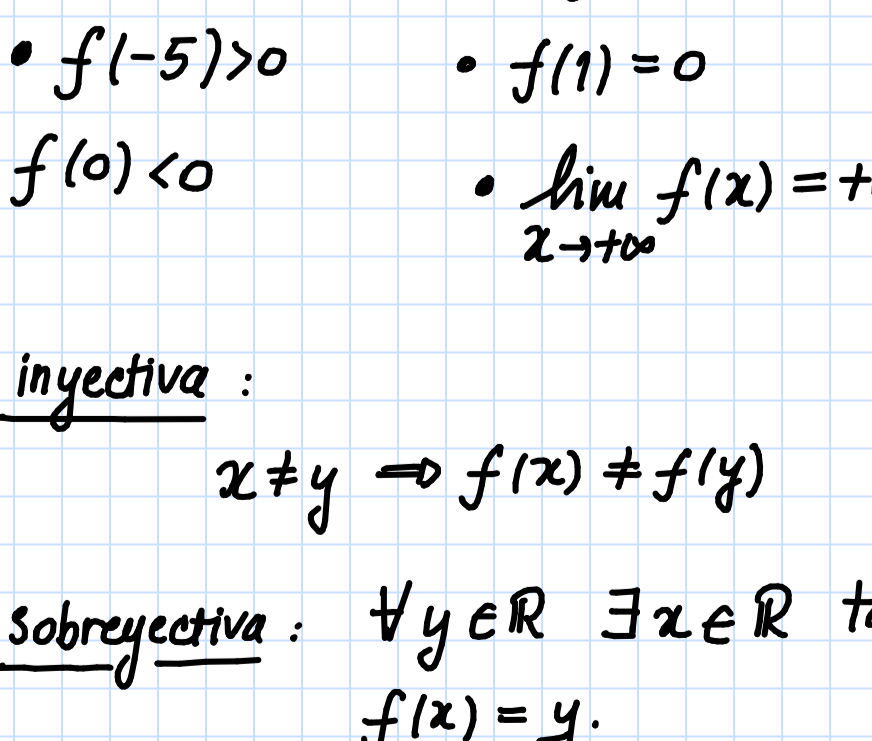 • f(-5)>0
• f(1) = 0
f(0) <0
• lim f(x) = +
x→+∞
inyectiva :
x ≠ y ⇒ f(x) ≠ f(y)
sobreyectiva : ∀ y ∈ ℝ ∃ x ∈ ℝ
f(x) = y.